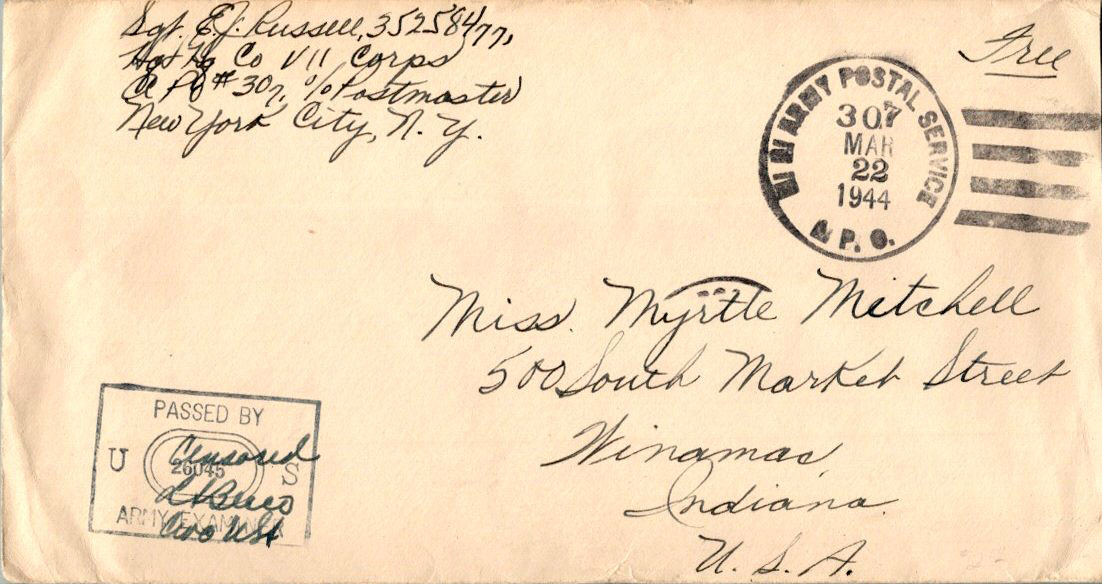 Sgt. E. J. Russell, 35258477,
Hq. Hq Co VII Corps
A PO # 307, % Postmaster
New York City, N. Y.
Free
ARMY POSTAL SERVICE
307
MAR
22
1944
A. P. O.
Miss. Myrtle Mitchell
500 South Market Street
Winamac,
Indiana.
U. S. A.
PASSED BY
U S
26045
ARMY EXAMINER
Censored